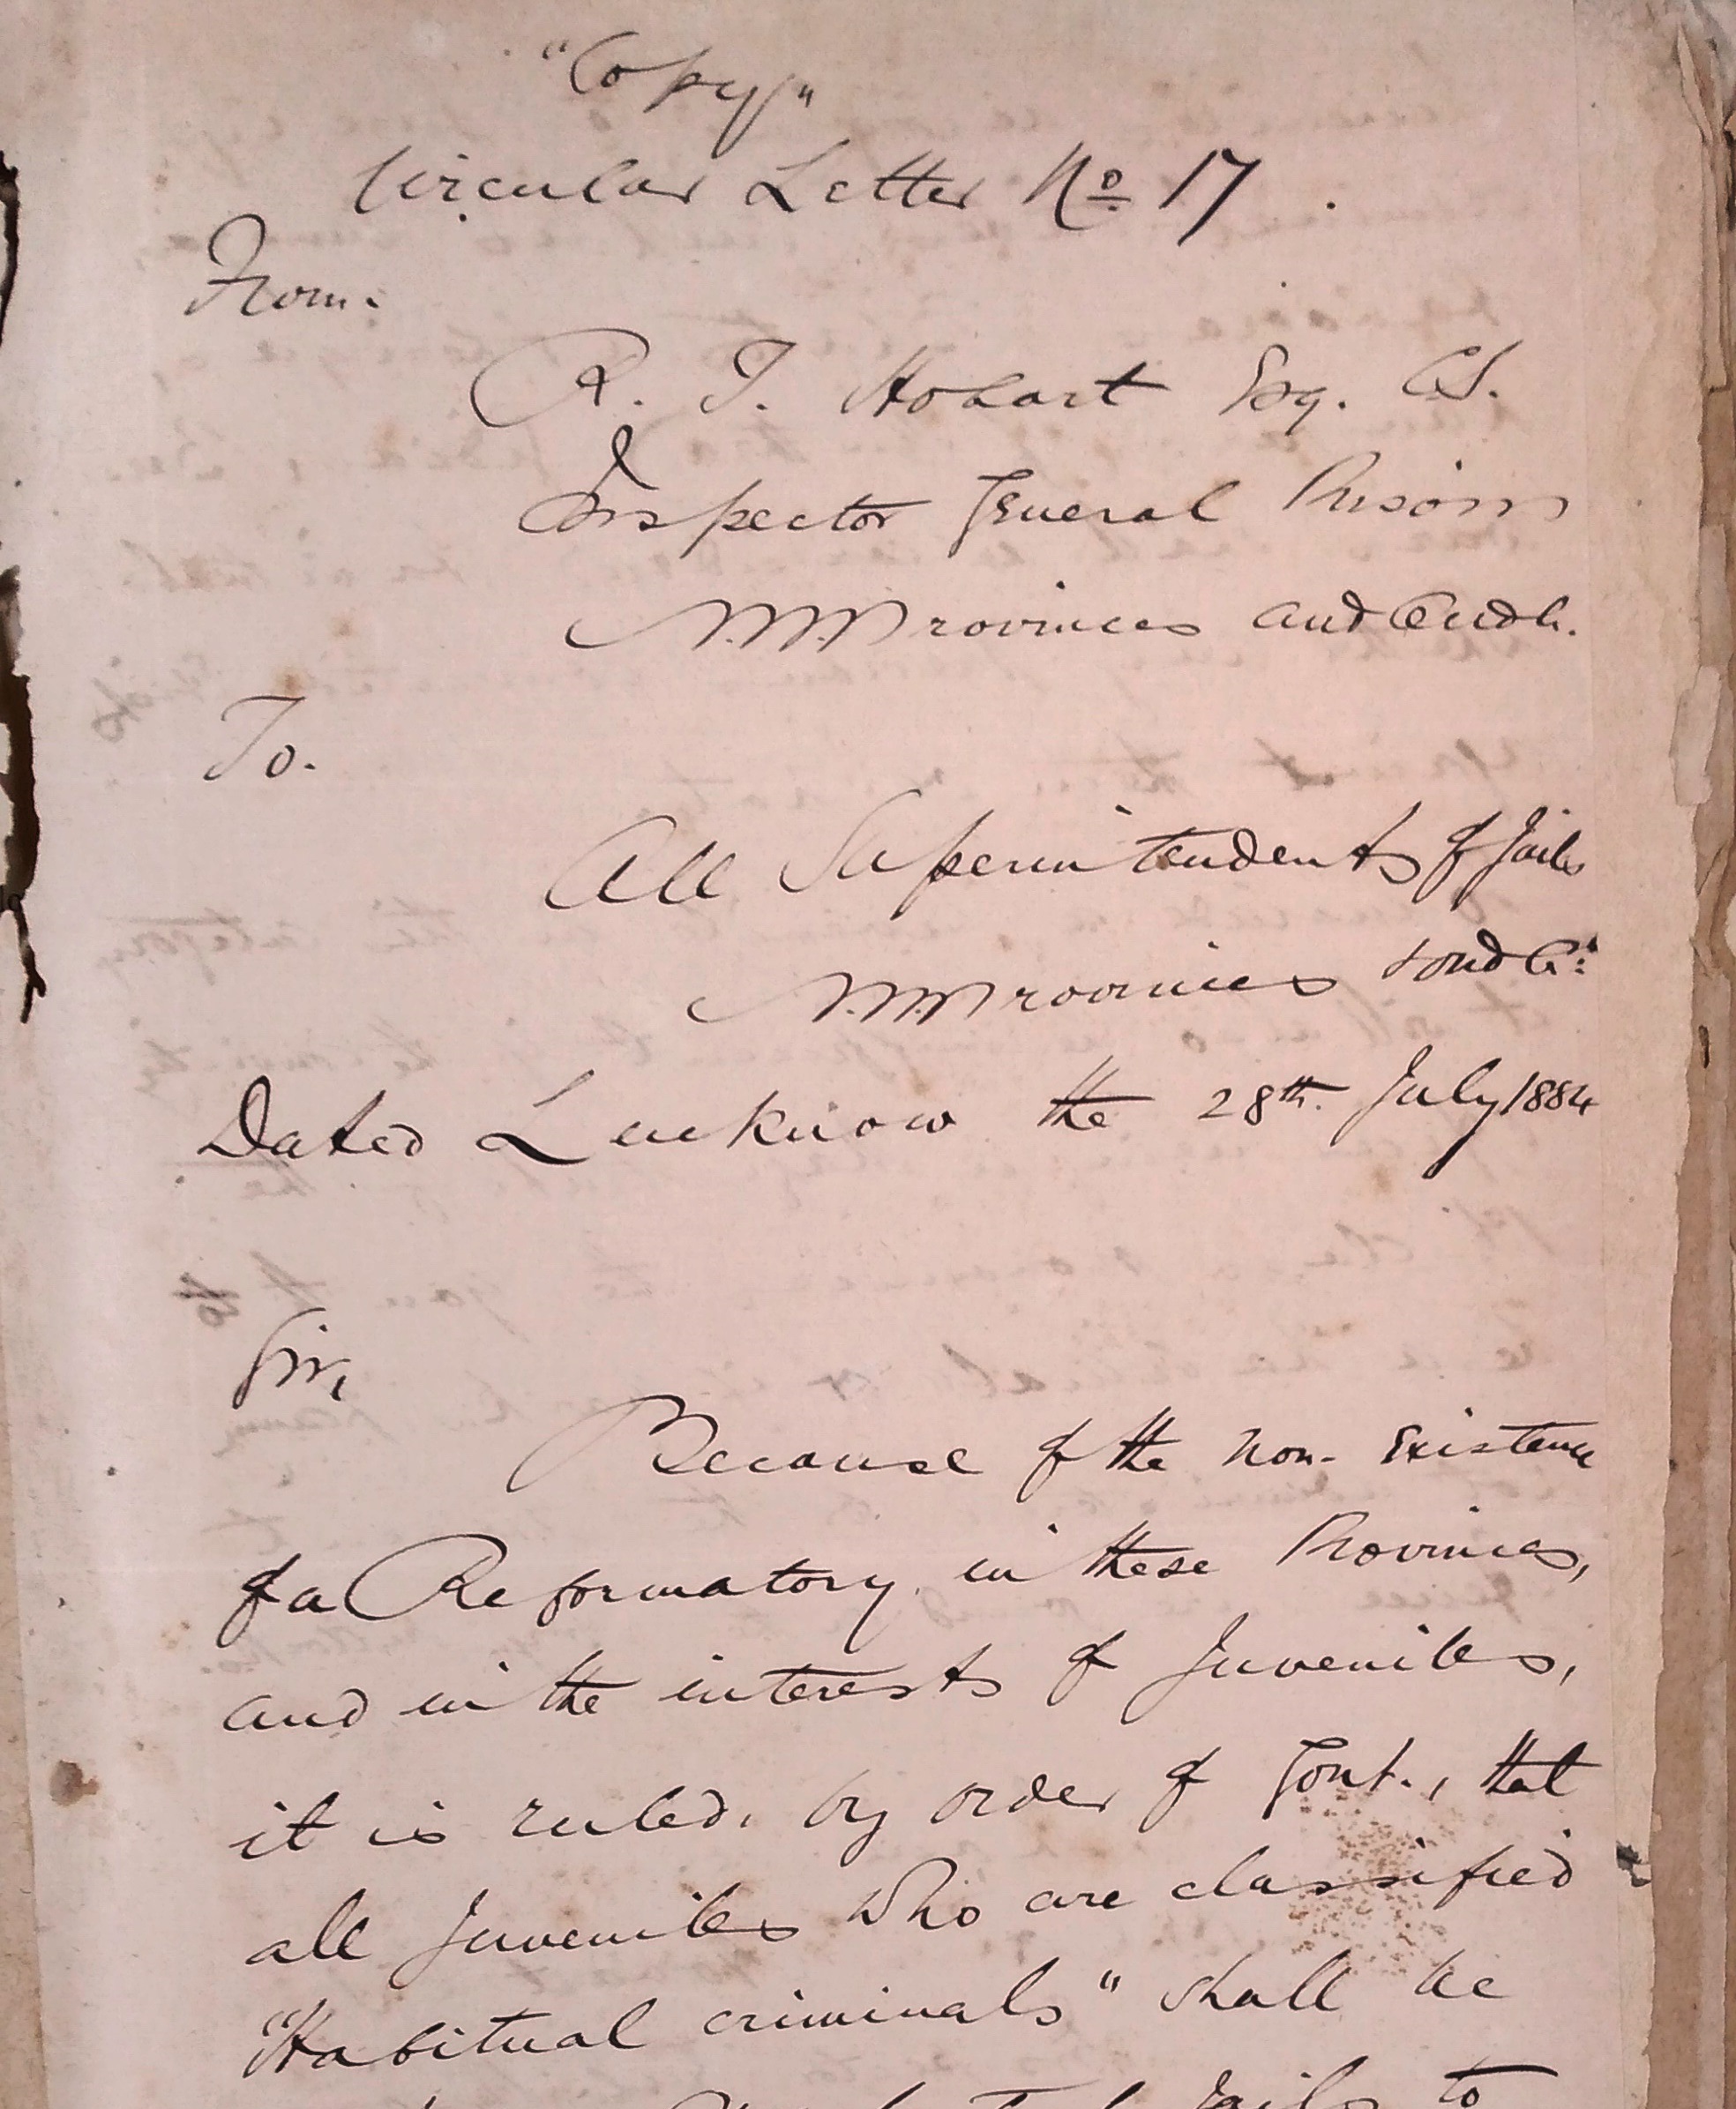 "Copy"
Circular Letter No 17.
From.
R. T. Hobart Esq. C.S.
Inspector General Prisons
N.W. Provinces and Oudh.
To.
All Superintendents of Jails
N.W. Provinces & Oudh.
Dated Lucknow the 28th. July 1884
Sir,
Because of the non-existence
of a Reformatory in these Provinces,
and in the interests of Juveniles,
it is ruled, by order of Govt., that
all Juveniles who are classified
"Habitual criminals" shall be
Jails to